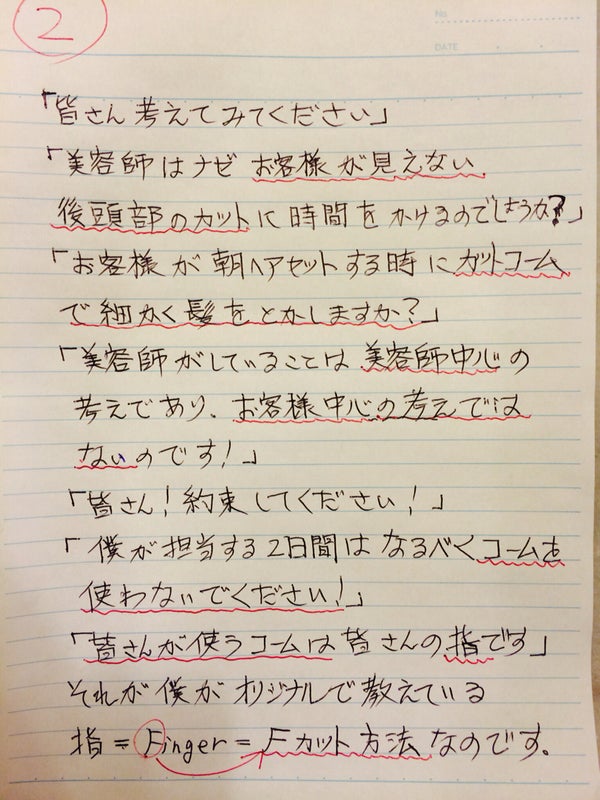 2
No.
DATE
「皆さん考えてみてください」
「美容師はナゼお客様が見えない
後頭部のカットに時間をかけるのでしょうか?」
「お客様が朝ヘアセットする時にカットコーム
で細かく髪をとかしますか?」
「美容師がしていることは美容師中心の
考えであり、お客様中心の考えでは
ないのです!」
「皆さん!約束してください!」
「僕が担当する2日間はなるべくコームを
使わないでください!」
「皆さんが使うコームは皆さんの指です」
それが僕がオリジナルで教えている
指=Finger=Fカット方法なのです。